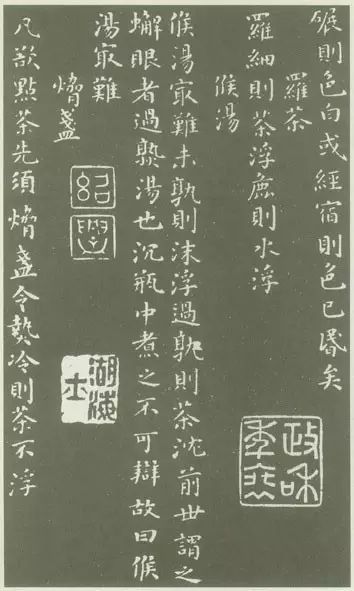 碾則色白或經宿則色已昏矣
羅茶
羅細則茶浮麁則水浮
候湯
候湯最難未孰則沫浮過孰則茶沈前世謂之
蠏眼者過熟湯也沉瓶中煮之不可辯故曰候
湯最難
熁盞
凡欲點茶先須熁盞令熱冷則茶不浮
紹興
政和